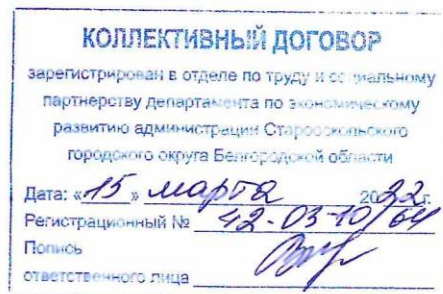 КОЛЛЕКТИВНЫЙ ДОГОВОР
зарегистрирован в отделе по труду и социальному
партнерству департамента по экономическому
развитию администрации Старооскольского
городского округа Белгородской области
Дата: «15» марта 2022 г.
Регистрационный № 42-03-10/64
Попись
ответственного лица